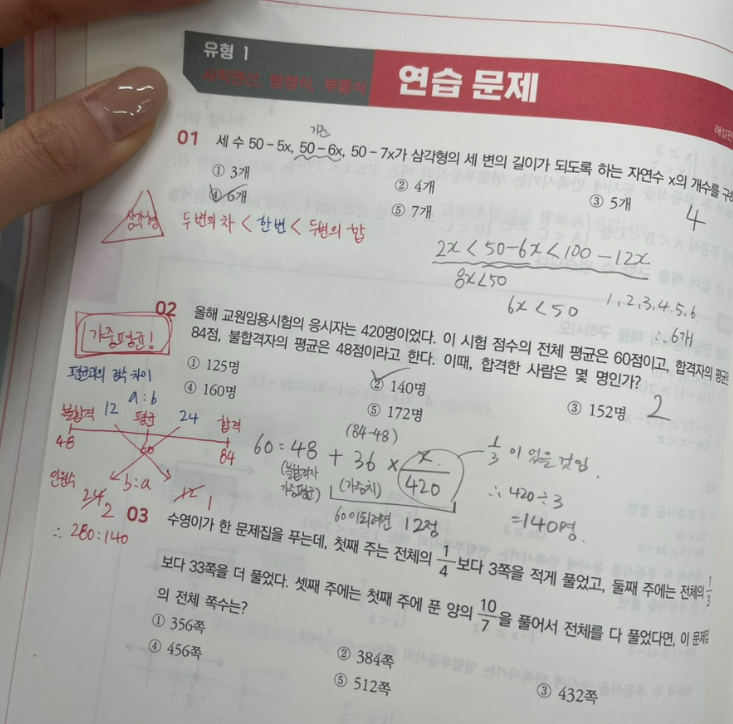 유형 1
연습 문제
가운
01 세 수 50-5x, 50-6x, 50-7x가 삼각형의 세 변의 길이가 되도록 하는 자연수 x의 개수를
① 3개
② 4개
③ 5개
④ 6개
⑤ 7개
4
삼각형
두 변의 차 < 한변 < 두변의 합
2x < 50-6x < 100-12x
8x<50
6x < 50
1, 2, 3, 4, 5, 6
∴ 6개
02 올해 교원임용시험의 응시자는 420명이었다. 이 시험 점수의 전체 평균은 60점이고, 합격자의 평균은
84점, 불합격자의 평균은 48점이라고 한다. 이때, 합격한 사람은 몇 명인가?
① 125명
② 140명
③ 152명
④ 160명
⑤ 172명
2
가중평균!
평균과의 점수 차이
a : b
불합격 12 평균 24 합격
48 60 84
인원수 b : a
24 2 12 1
∴ 280:140
(84-48)
60 = 48 + 36 × x/420
(불합격자 가중평균) (가중치)
60이되려면 12점
1/3 이 있을 것임.
∴ 420÷3
=140명.
03 수영이가 한 문제집을 푸는데, 첫째 주는 전체의 1/4보다 3쪽을 적게 풀었고, 둘째 주에는 전체의 1/3
보다 33쪽을 더 풀었다. 셋째 주에는 첫째 주에 푼 양의 10/7을 풀어서 전체를 다 풀었다면, 이 문제집
의 전체 쪽수는?
① 356쪽
② 384쪽
③ 432쪽
④ 456쪽
⑤ 512쪽